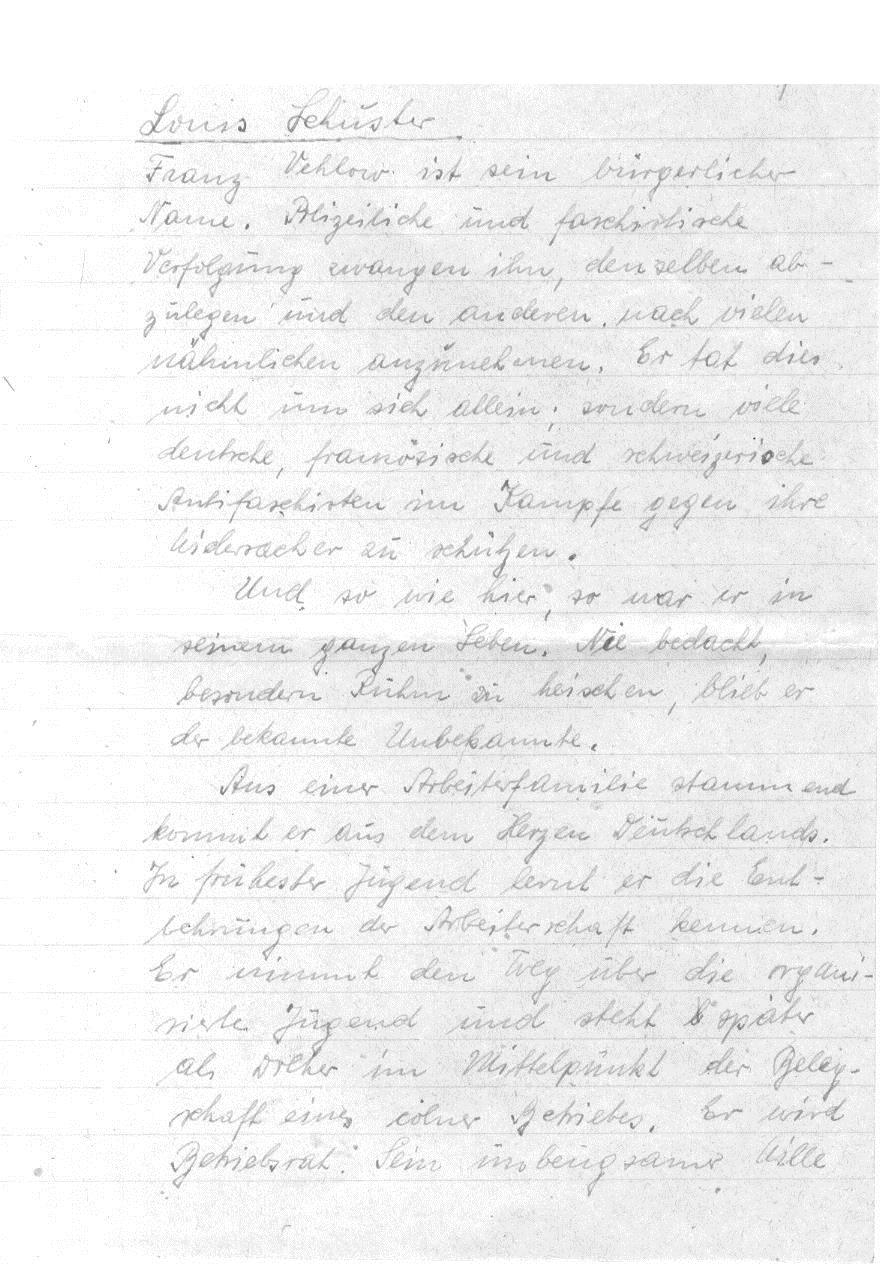 Louis Schuster
Franz Vehlow ist sein bürgerlicher
Name. Polizeiliche und faschistische
Verfolgung zwangen ihn, denselben ab-
zulegen und den anderen, nach vielen
nähmlichen anzunehmen. Er tat dies
nicht um sich allein; sondern viele
deutsche, französische und schweizerische
Antifaschisten im Kampfe gegen ihre
Widersacher zu schützen.
Und so wie hier, so war er in
seinem ganzen Leben. Nie bedacht,
besondern Ruhm zu heischen, blieb er
der bekannte Unbekannte.
Aus einer Arbeiterfamilie stammend
kommt er aus dem Herzen Deutschlands.
In frühester Jugend lernt er die Ent-
behrungen der Arbeiterschaft kennen.
Er nimmt den Weg über die organi-
sierte Jugend und steht später
als im Mittelpunkt der Beleg-
schaft eines cölner Betriebes. Er wird
Betriebsrat. Sein unbeugsamer Wille